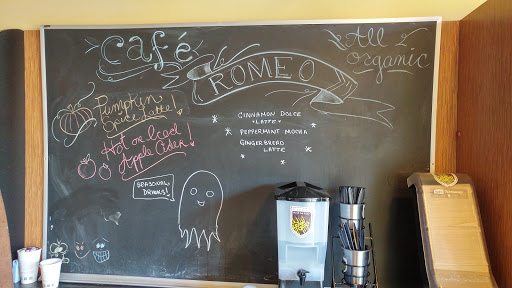 café
ROMEO
All
organic
Pumpkin
Sauce Latte!
Hot or Iced
Apple Cider!
CINNAMON DOLCE
LATTE
PEPPERMINT MOCHA
GINGERBREAD
LATTE
SEASONAL
DRINKS!